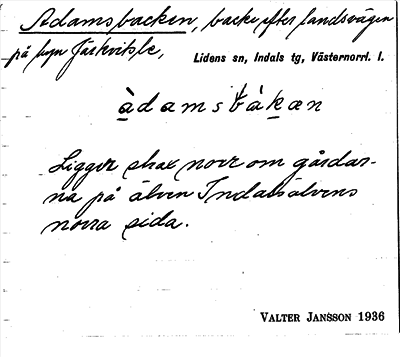 Adamsbacken, backe efter landsvägen
på byn Järkvitsle,
Lidens sn, Indals tg, Västernorrl. l.
àdamsbàkan
Ligger strax norr om gårdar-
na på älven Indalsälvens
norra sida.
VALTER JANSSON 1936